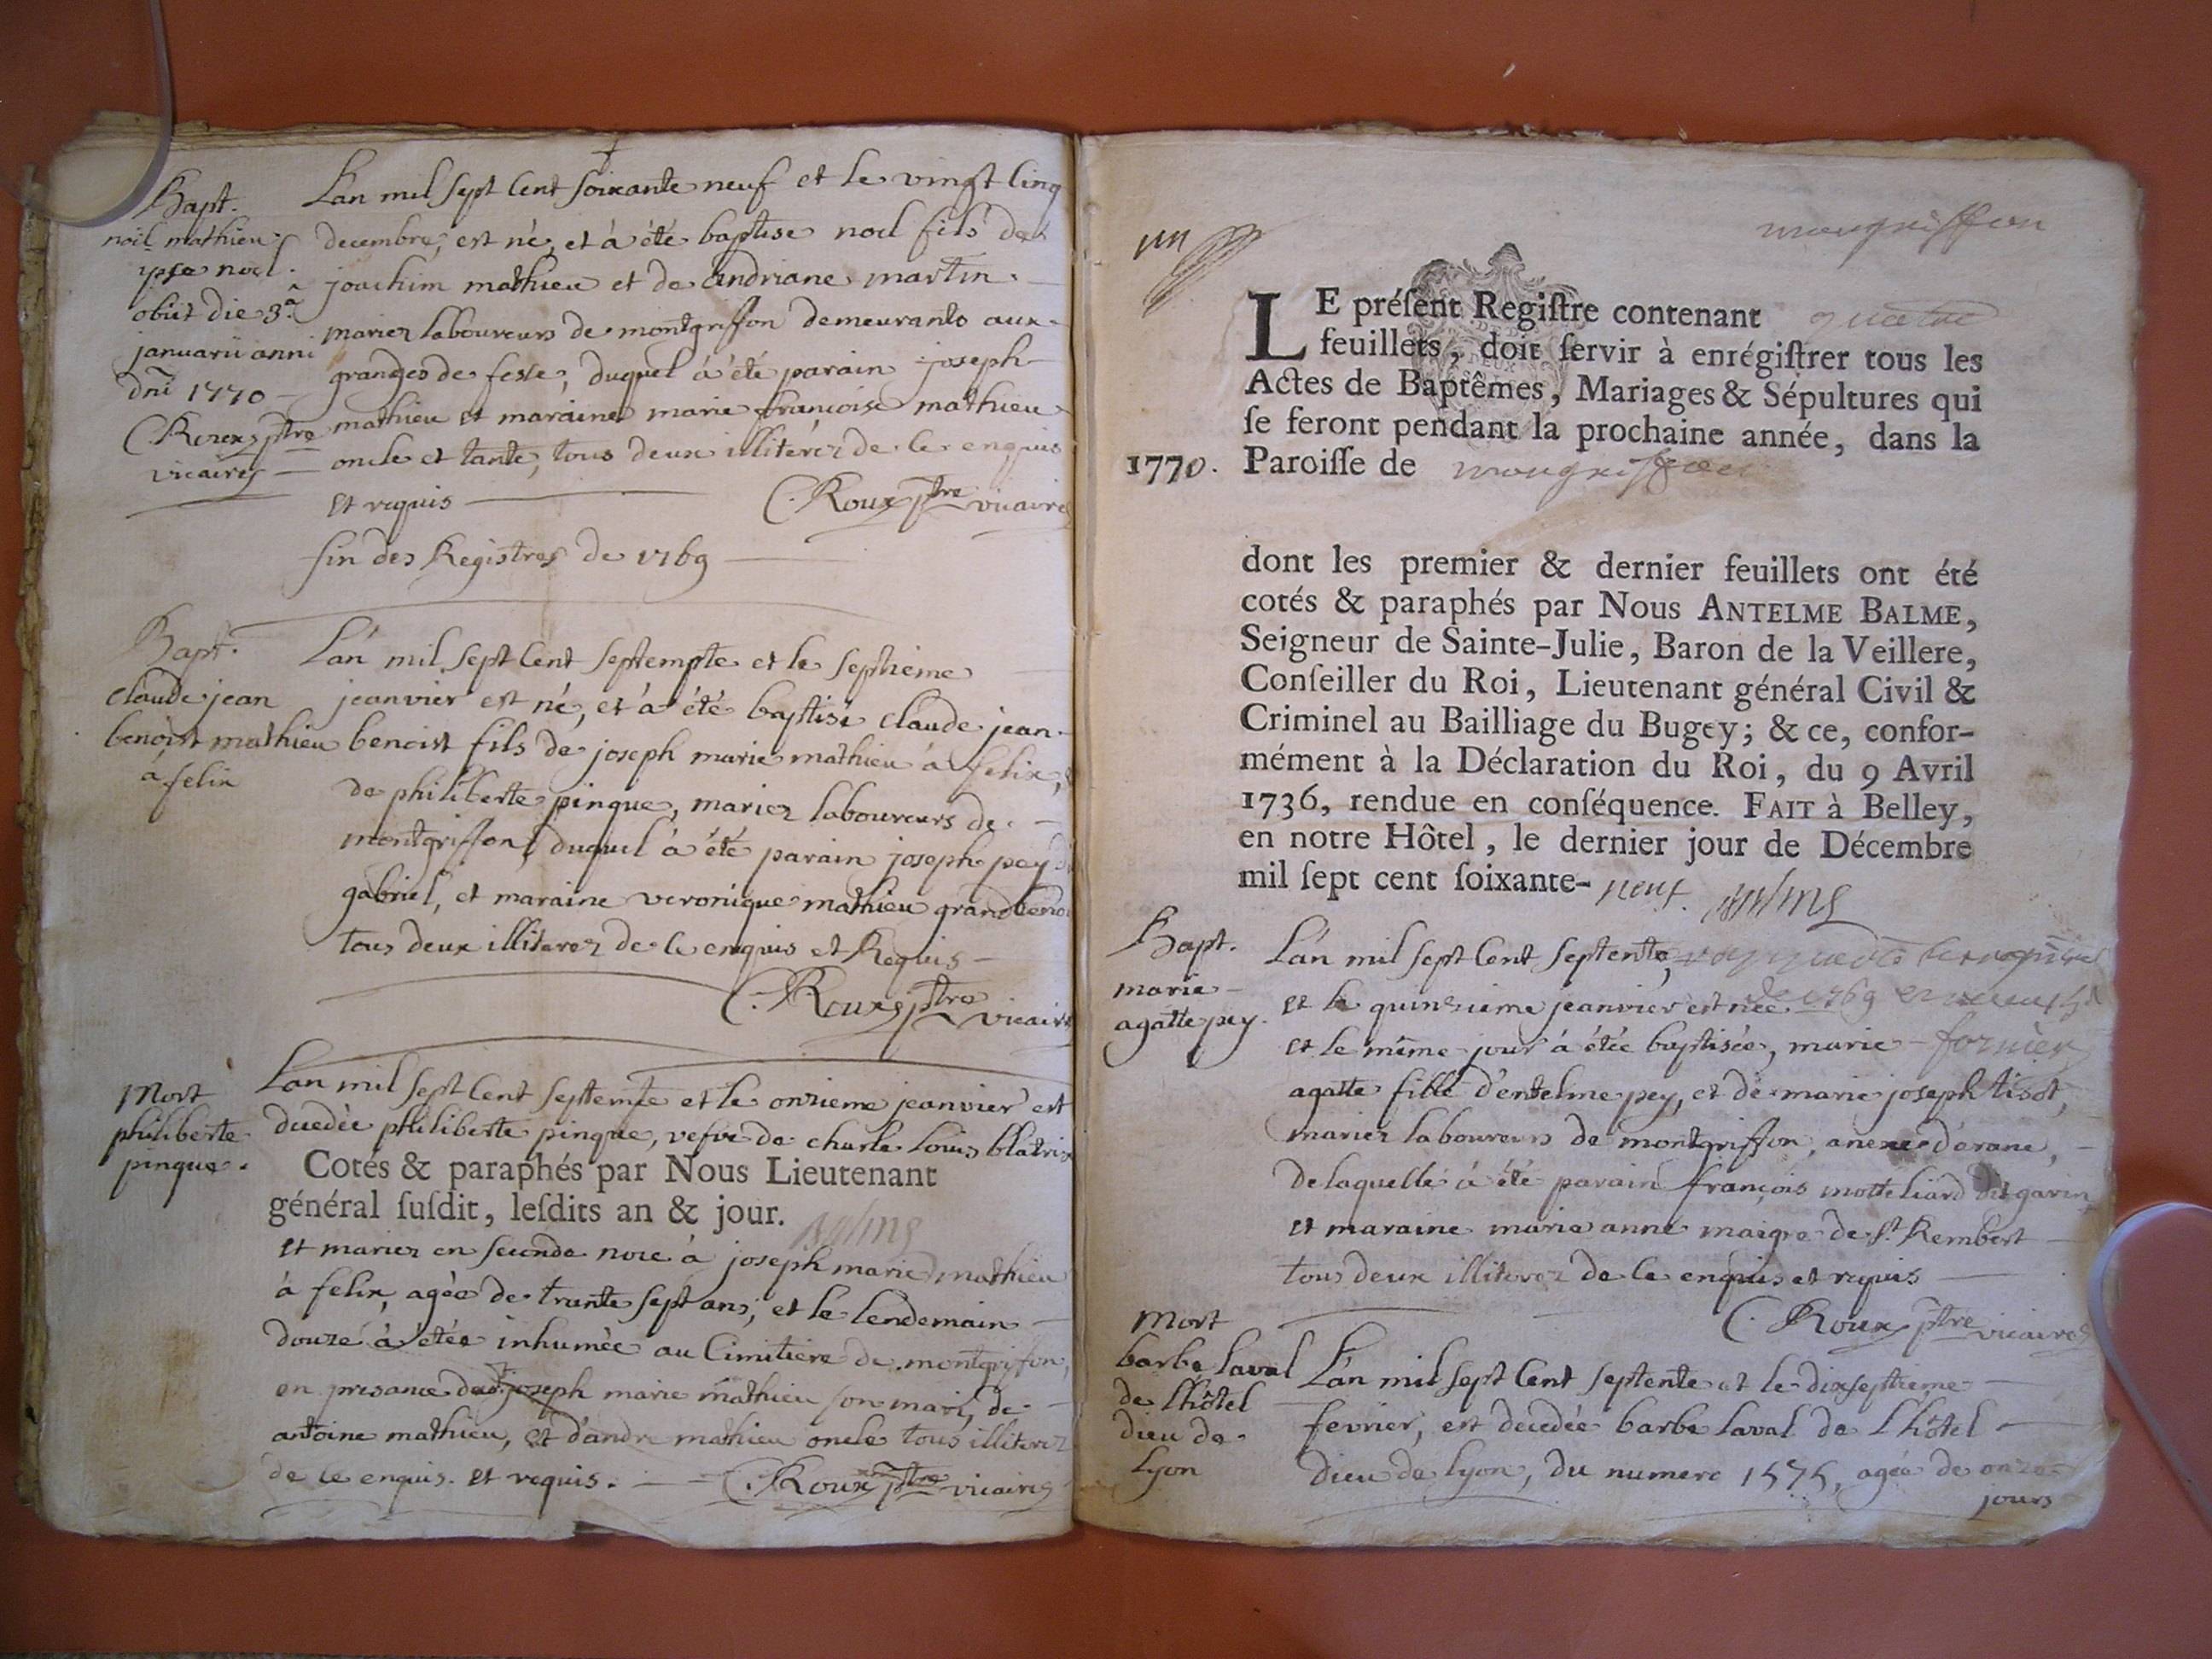 Bapt.
noël mathieu
ipse noel
obiit die 3.ª
januarii anni
dni 1770
C. Roux ptre
vicaire
Lan mil sept Cent soixante neuf et le vingt Cinq
decembre, est né, et à été baptise noel fils de
joachim mathieu et de andriane martin
mariez laboureurs de montgriffon demeurants aux
granges de fesle, duquel à été parain joseph
mathieu et maraine marie francoise mathieu
oncle et tante, tous deux illiterez de ce enquis
et requis C. Roux ptre vicaire
fin des Registres de 1769
Bapt.
claude jean
benoist mathieu
à felix
Lan mil sept Cent septempte et le septieme
jeanvier est né, et à été baptisé claude jean
benoist fils de joseph marie mathieu à felix,
de philiberte pinque, mariez laboureurs de
montgriffon, duquel à été parain joseph pey
gabriel, et maraine veronique mathieu
tous deux illiterez de ce enquis et Requis
C. Roux ptre vicaire
Mort
philiberte
pinque.
Lan mil sept Cent septempte et le onzieme jeanvier est
decedée philiberte pinque, vefve de charle Louis blatrix
Cotés & paraphés par Nous Lieutenant
général ſuſdit, leſdits an & jour.
Balme
et mariez en seconde noce à joseph marie mathieu
à felix, agée de trante sept ans, et le lendemain
douze à étée inhumée au Cimitiere de montgriffon,
en presance dudt joseph marie mathieu son mari, de
antoine mathieu, et d'andre mathieu oncle tous illiterez
de ce enquis et requis. C. Roux ptre vicaire
mongriffon
LE préſent Regiſtre contenant quatre
feuillets, doit ſervir à enrégiſtrer tous les
Actes de Baptêmes, Mariages & Sépultures qui
ſe feront pendant la prochaine année, dans la
1770. Paroiſſe de mongriffon
dont les premier & dernier feuillets ont été
cotés & paraphés par Nous ANTELME BALME,
Seigneur de Sainte-Julie, Baron de la Veillere,
Conſeiller du Roi, Lieutenant général Civil &
Criminel au Bailliage du Bugey; & ce, confor-
mément à la Déclaration du Roi, du 9 Avril
1736, rendue en conſéquence. FAIT à Belley,
en notre Hôtel, le dernier jour de Décembre
mil ſept cent ſoixante- neuf. Balme
Bapt.
marie
agatte pey.
Lan mil sept Cent septente,
et le quinzieme jeanvier est née
et le même jour à étée baptisée, marie
agatte fille d'entelme pey, et de marie joseph tisot,
mariez laboureurs de montgriffon, anexe d'arane,
de laquelle à été parain françois motteliard dit garin
et maraine marie anne maigre de St. Rembert
tous deux illiterez de ce enquis et requis
C. Roux ptre vicaire
Mort
barbe laval
de Lhôtel
dieu de
Lyon
Lan mil sept Cent septente et le dixseptieme
fevrier, est decedée barbe laval de Lhôtel
dieu de lyon, du numero 1575, agée de onze
jours